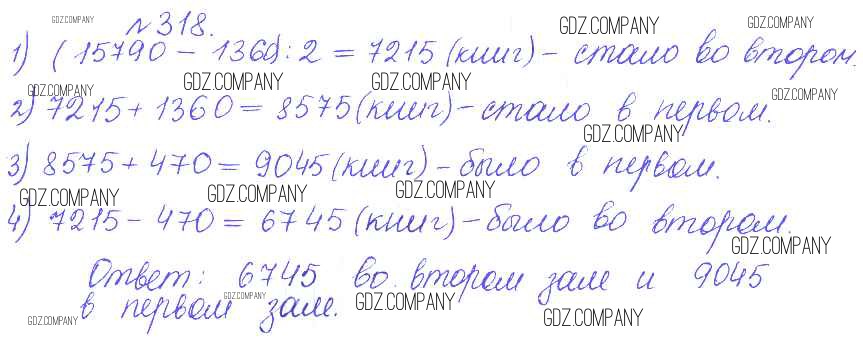 GDZ.COMPANY № 318. GDZ.COMPANY GDZ.COMPANY
1) (15790 - 1360) : 2 = 7215 (книг) - стало во втором.
GDZ.COMPANY GDZ.COMPANY GDZ.COMPANY GDZ.COMPANY
2) 7215 + 1360 = 8575 (книг) - стало в первом.
GDZ.COMPANY
3) 8575 + 470 = 9045 (книг) - было в первом.
GDZ.COMPANY GDZ.COMPANY GDZ.COMPANY
4) 7215 - 470 = 6745 (книг) - было во втором.
GDZ.COMPANY
Ответ: 6745 во втором зале и 9045
в первом зале. GDZ.COMPANY GDZ.COMPANY
GDZ.COMPANY GDZ.COMPANY